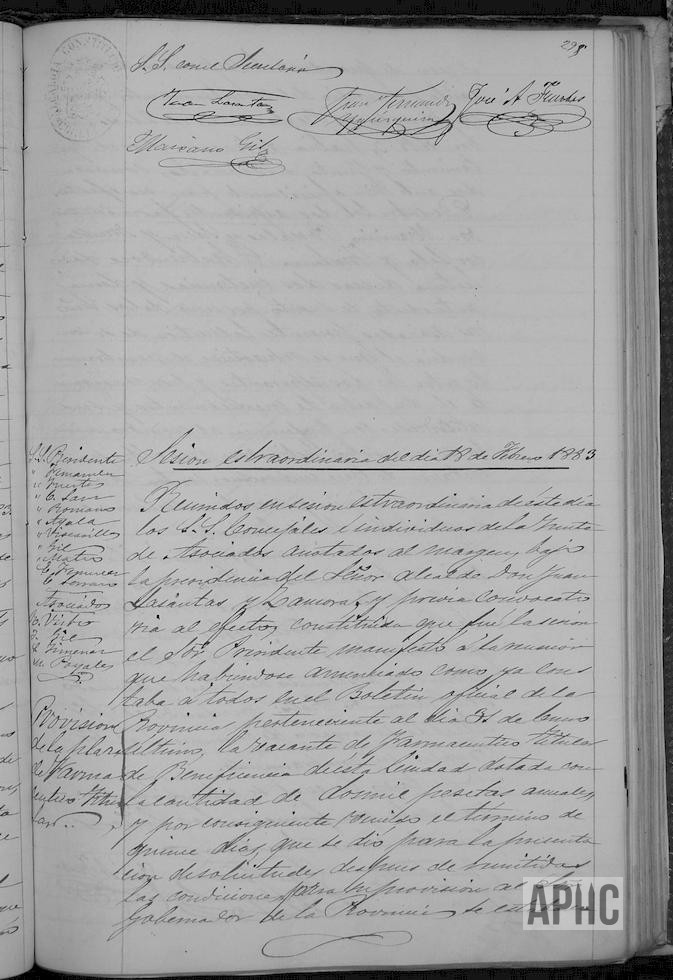 298
S. S. con el Secretario
Juan Lasanta
Juan Fernandez
José A. Fuertes
Mariano Gil
Sesion extraordinaria del dia 18 de Febrero 1883
S. S. Presidente
" Fuertes
" C. Sanz
" Romano
" Ayala
" Gil
" Mateo
C. Serrano
Asociados
J. Gil
S. Gimenez
M. Royales
Provision
de la plaza
de Farma-
ceutico titu
lar..
Reunidos en sesion extraordinaria de éste dia
los S. S. Concejales é individuos de la Junta
de Asociados anotados al margen, bajo
la presidencia del Señor alcalde Don Juan
Lasantas y Zamora, y previa convocato
ria al efecto, constituida que fué la sesion
el Sor. Presidente manifestó á la reunion
que habiendose anunciado como ya cons
taba á todos en el Boletin oficial de la
Provincia perteneciente al dia 31 de Enero
último, la vacante de Farmaceutico titular
de Beneficencia de esta Ciudad dotada con
la cantidad de dos mil pesetas anuales,
y por consiguiente vencido el término de
quince dias que se dió para la presenta
cion de solicitudes, despues de remitidas
las condiciones para su provision al
Gobernador de la Provincia se
APHC